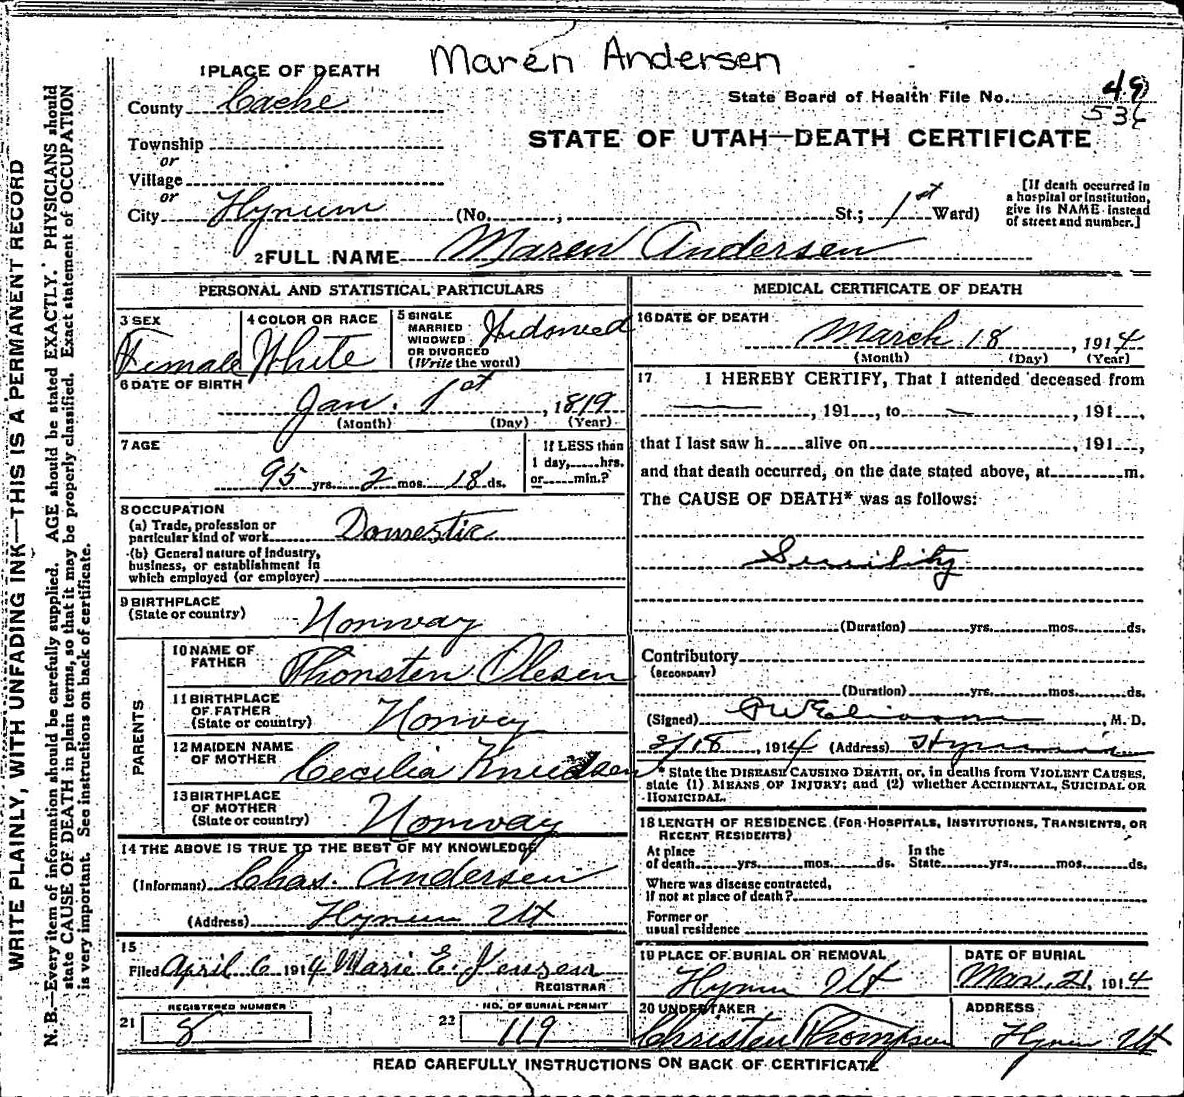 Maren Andersen
1 PLACE OF DEATH
County Cache
State Board of Health File No. 49
536
STATE OF UTAH—DEATH CERTIFICATE
Township
or
Village
or
City Hyrum (No. ; St.; 1st Ward)
[If death occurred in
a hospital or institution,
give its NAME instead
of street and number.]
2 FULL NAME Maren Andersen
PERSONAL AND STATISTICAL PARTICULARS
3 SEX
Female
4 COLOR OR RACE
White
5 SINGLE
MARRIED
WIDOWED
OR DIVORCED
(Write the word)
Widowed
6 DATE OF BIRTH
Jan. 1st, 1819
(Month) (Day) (Year)
7 AGE
95 yrs. 2 mos. 18 ds.
If LESS than
1 day, hrs.
or min.?
8 OCCUPATION
(a) Trade, profession or
particular kind of work Domestic
(b) General nature of industry,
business, or establishment in
which employed (or employer)
9 BIRTHPLACE
(State or country)
Norway
PARENTS
10 NAME OF
FATHER
Thorsten Olesen
11 BIRTHPLACE
OF FATHER
(State or country)
Norway
12 MAIDEN NAME
OF MOTHER
Cecilia Knudsen
13 BIRTHPLACE
OF MOTHER
(State or country)
Norway
14 THE ABOVE IS TRUE TO THE BEST OF MY KNOWLEDGE
(Informant) Chas. Andersen
(Address) Hyrum Ut
15
Filed April 6 1914 Marie E. Jensen
REGISTRAR
REGISTERED NUMBER
21 8
NO. OF BURIAL PERMIT
22 119
MEDICAL CERTIFICATE OF DEATH
16 DATE OF DEATH
March 18, 1914
(Month) (Day) (Year)
17 I HEREBY CERTIFY, That I attended deceased from
, 191 , to , 191 ,
that I last saw h alive on , 191 ,
and that death occurred, on the date stated above, at m.
The CAUSE OF DEATH* was as follows:
Senility
(Duration) yrs. mos. ds.
Contributory
(SECONDARY)
(Duration) yrs. mos. ds.
(Signed) , M. D.
3/18, 1914 (Address) Hyrum
* State the DISEASE CAUSING DEATH, or, in deaths from VIOLENT CAUSES,
state (1) MEANS OF INJURY; and (2) whether ACCIDENTAL, SUICIDAL OR
HOMICIDAL.
18 LENGTH OF RESIDENCE (FOR HOSPITALS, INSTITUTIONS, TRANSIENTS, OR
RECENT RESIDENTS)
At place
of death yrs. mos. ds.
In the
State yrs. mos. ds.
Where was disease contracted,
If not at place of death?
Former or
usual residence
19 PLACE OF BURIAL OR REMOVAL
Hyrum Ut
DATE OF BURIAL
Mar. 21, 1914
20 UNDERTAKER
Christen Thompsen
ADDRESS
Hyrum Ut
READ CAREFULLY INSTRUCTIONS ON BACK OF CERTIFICATE
WRITE PLAINLY, WITH UNFADING INK—THIS IS A PERMANENT RECORD
N. B.—Every item of information should be carefully supplied. AGE should be stated EXACTLY. PHYSICIANS should
state CAUSE OF DEATH in plain terms, so that it may be properly classified. Exact statement of OCCUPATION
is very important. See instructions on back of certificate.